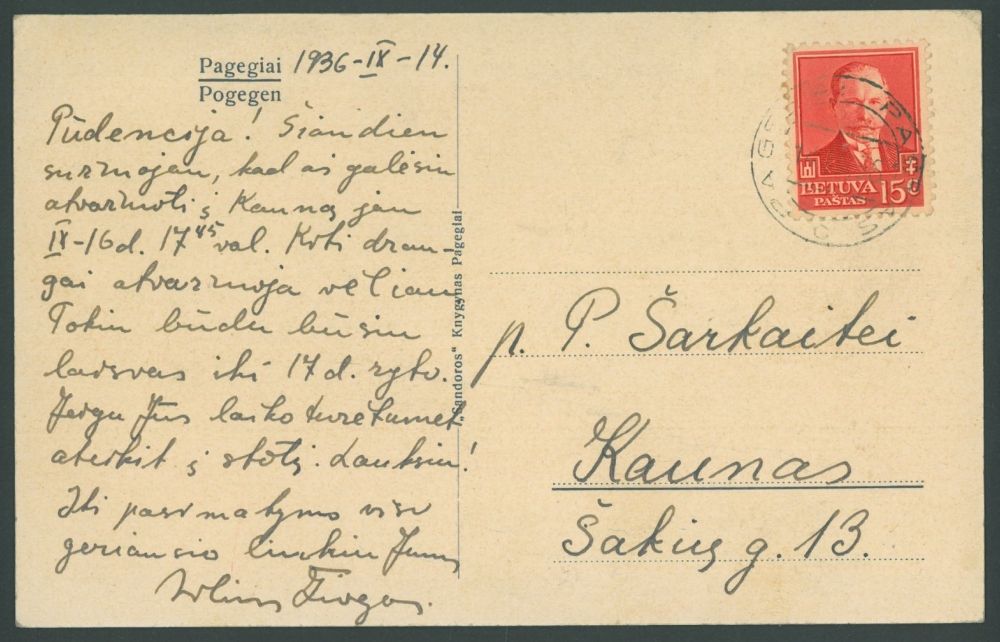 Pagegiai 1936-IX-14.
Pogegen
Pūdencija! Šiandien
surzmojau, kad aš galėsiu
atvažiuoti į Kauną jau
IX-16 d. 17⁴⁵ val. Kiti drau-
gai atvažiuoja vėliau
Tokiu būdu būsiu
laisvas iki 17 d. ryto.
Jeigu Jūs laiko turėtumėt
ateikit į stotį. Lauksiu!
Iki pasimatymo viso
geriausio linkiu Jums
„Sandoros“ Knygynas Pagegiai
LIETUVA 15c
PAŠTAS
PAGĖGIAI
p. P. Šarkaitei
Kaunas
Šakių g. 13.